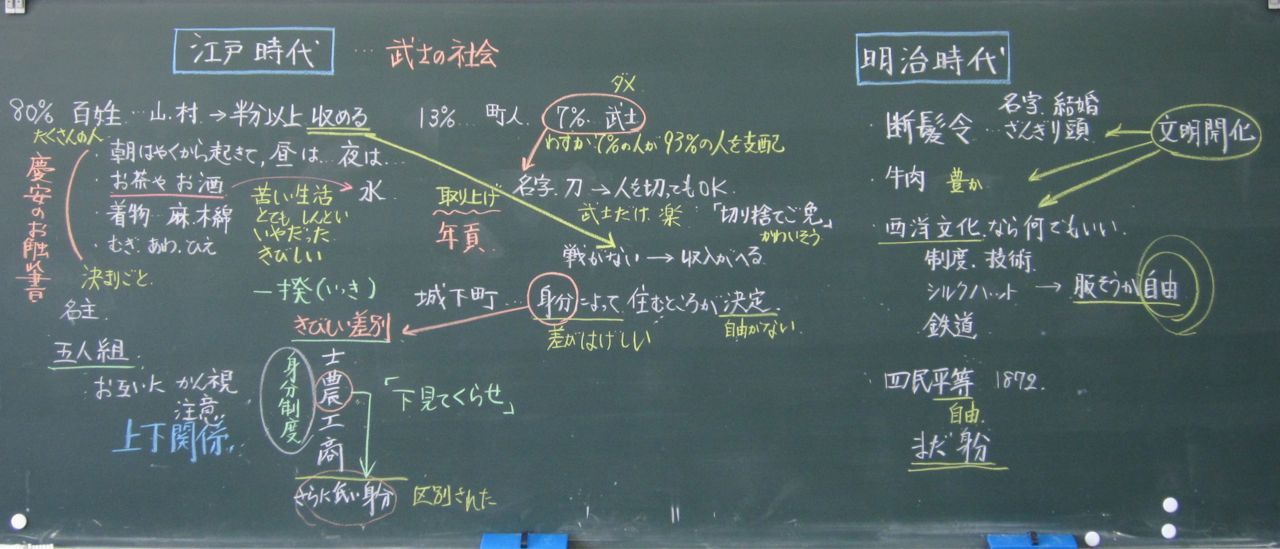 江戸時代 … 武士の社会
80% 百姓 … 山.村 → 半分以上 収める
たくさんの人
慶安のお触書
・朝はやくから起きて, 昼は… 夜は…
・お茶や お酒 → 水
・着物 麻.木綿
・むぎ. あわ. ひえ
苦い生活
とても しんどい
いやだった
きびしい
決まりごと
名主.
五人組
お互いに かん視
注意
上下関係
一揆(いっき)
きびしい差別
身分制度
士
農
工
商
「下見てくらせ」
さらに低い身分 区別された
13% … 町人
ダメ
7% … 武士
わずか7%の人が93%の人を支配
名字. 刀 → 人を切ってもOK.
武士だけ 楽 「切り捨てご免」
かわいそう
取り上げ
年貢
戦がない → 収入がへる.
城下町 … 身分によって 住むところが 決定
差がはげしい 自由がない
明治時代
断髪令 … 名字. 結婚
ざんぎり頭
文明開化
・牛肉 豊か
・西洋文化.なら何でもいい.
制度. 技術.
シルクハット → 服そうが自由
鉄道
・四民平等 1872.
自由.
まだ 身分